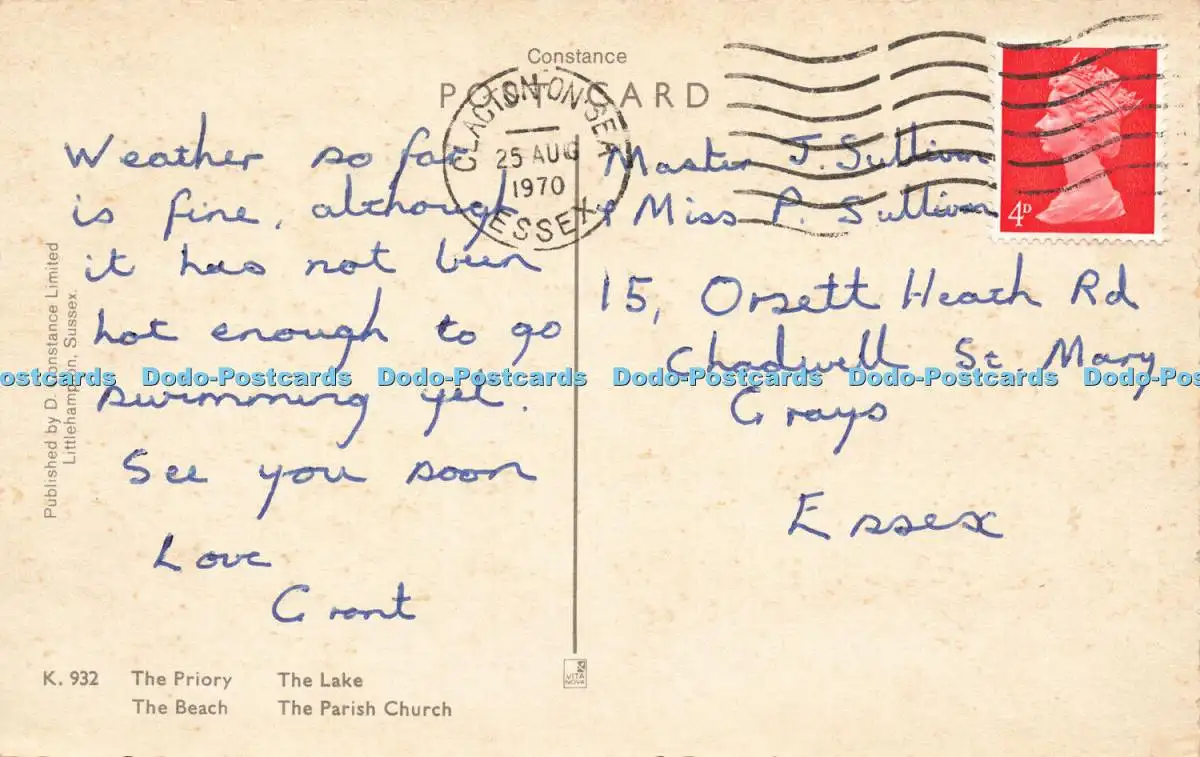 Constance
POST CARD
CLACTON-ON-SEA
25 AUG
1970
ESSEX
4D
Weather so far
is fine, although
it has not been
hot enough to go
swimming yet.
See you soon
Love
Grant
Master J. Sullivan
& Miss P. Sullivan
15, Orsett Heath Rd
Chadwell St. Mary
Grays
Essex
Published by D. Constance Limited
Littlehampton, Sussex.
K. 932 The Priory The Lake
The Beach The Parish Church
VITA
NOVA
Dodo-Postcards Dodo-Postcards Dodo-Postcards Dodo-Postcards Dodo-Postcards